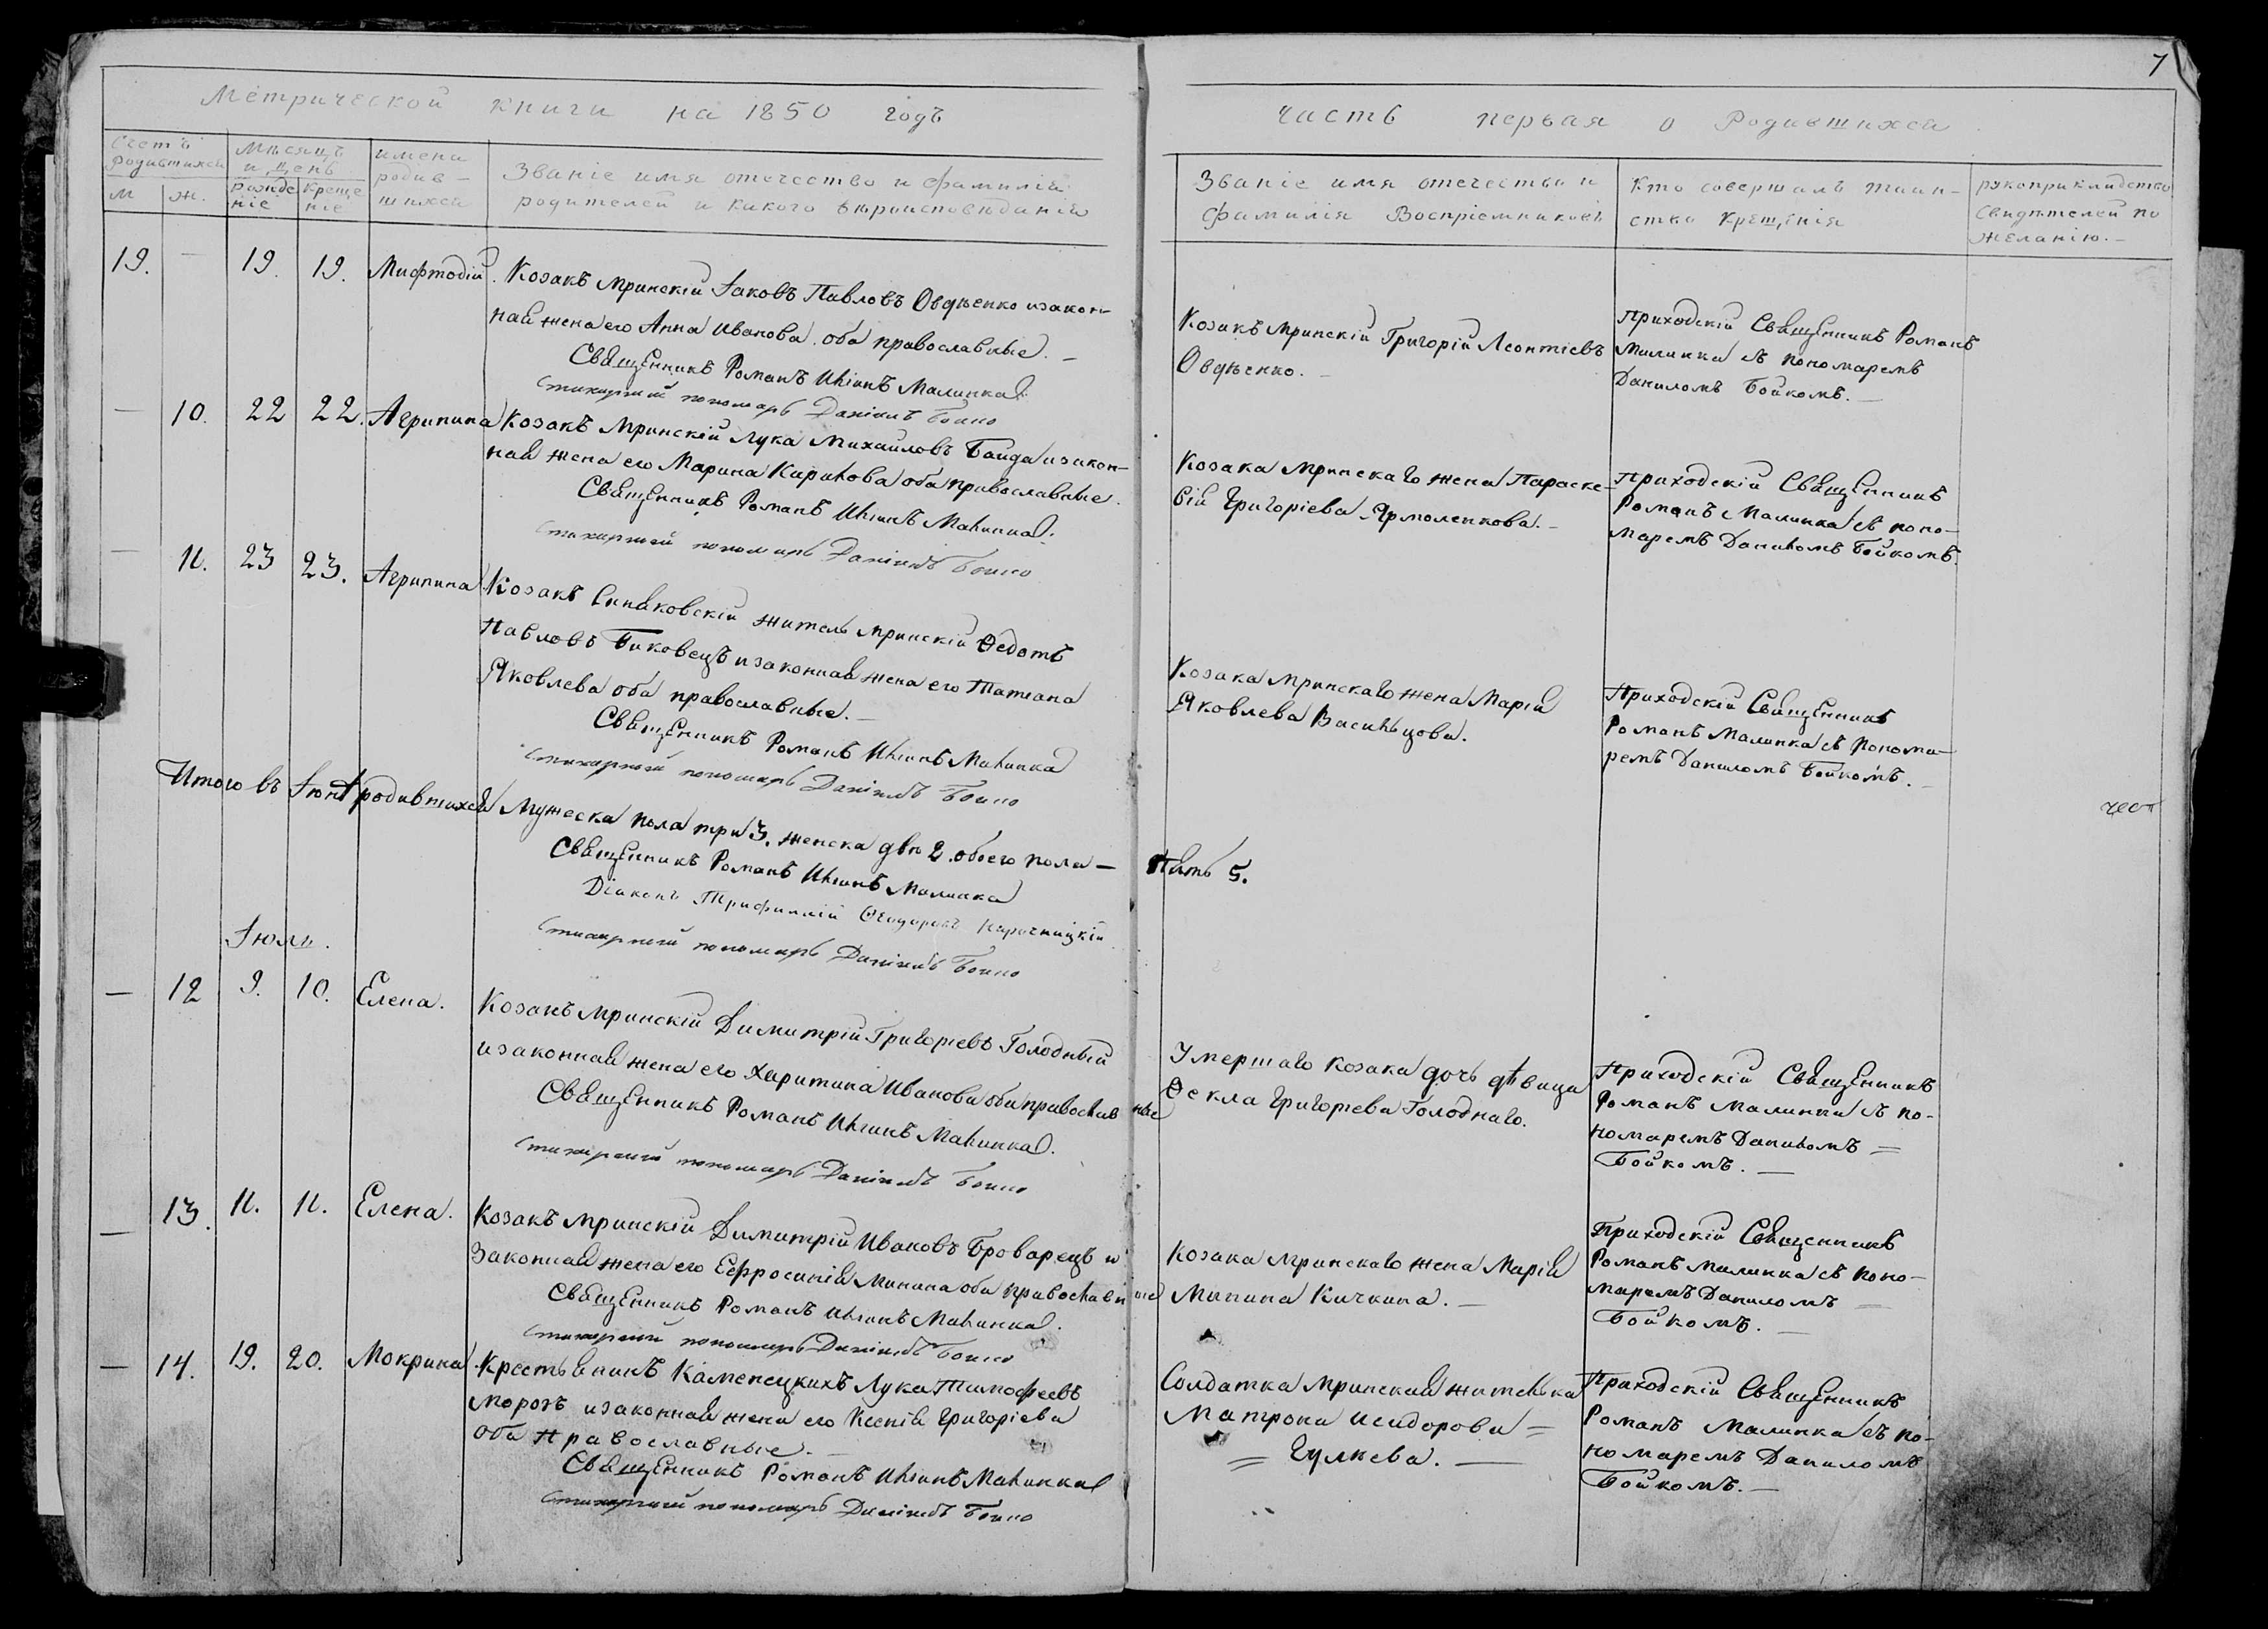 7
Метрической книги на 1850 годъ
часть первая о Родившихся
Счетъ родившихся
М. Ж.
Мѣсяцъ и день
рожде ніе
креще ніе
имена родив-
шихся
Званіе имя отечество и фамилія
родителей и какого вѣроисповѣданія
Званіе имя отечество и
фамилія Воспріемниковъ
Кто совершалъ таин-
ство крещенія
рукоприкладство
свидѣтелей по
желанію.-
19. - 19. 19. Мифтодій. Козакъ Мринскій Іаковъ Павловъ Овдѣенко изакон-
ная жена его Анна Иванова. оба православные. -
Священникъ Романъ Иліинъ Малинка.
Стихарный пономарь Даніилъ Бойко
Козакъ Мринскій Григорій Леонтіевъ
Овдѣенко. -
Приходскій Священникъ Романъ
Малинка съ пономаремъ
Даниломъ Бойкомъ. -
- 10. 22 22. Агрипина Козакъ Мринскій Лука Михайловъ Байда изакон-
ная жена его Марина Кирилова оба православные.
Священникъ Романъ Иліинъ Малинка.
Стихарный пономарь Даніилъ Бойко
Козака Мринскаго жена Параске-
вія Григоріева Ярмоленкова. -
Приходскій Священникъ
Романъ Малинка съ поно-
маремъ Даниломъ Бойкомъ.
- 11. 23 23. Агрипина Козакъ Синяковскій житель Мринскій Ѳедотъ
Павловъ Биковецъ изаконная жена его Татіана
Яковлева оба православные. -
Священникъ Романъ Иліинъ Малинка
Стихарный пономарь Даніилъ Бойко
Козака Мринскаго жена Марія
Яковлева Васильцова.
Приходскій Священникъ
Романъ Малинка съ понома-
ремъ Даниломъ Бойкомъ. -
Итого въ Іюнѣ родившихся Мужеска пола три 3. женска двѣ 2. обоего пола -
Пять 5.
Священникъ Романъ Иліинъ Малинка
Діаконъ Трифиллій Ѳеодоровъ
Стихарный пономарь Даніилъ Бойко
Іюль.
- 12 9. 10. Елена. Козакъ Мринскій Димитрій Григоріевъ Голодный
изаконная жена его Харитина Иванова оба православные
Священникъ Романъ Иліинъ Малинка.
Стихарный пономарь Даніилъ Бойко
Умершаго Козака дочь дѣвица
Ѳекла Григоріева Голоднаго.
Приходскій Священникъ
Романъ Малинка съ по-
номаремъ Даниломъ =
Бойкомъ. -
- 13. 11. 11. Елена. Козакъ Мринскій Димитрій Ивановъ Броварецъ и
Законная жена его Ефросинія Минина оба православные
Священникъ Романъ Иліинъ Малинка.
Стихарный пономарь Даніилъ Бойко
Козака Мринскаго жена Марія
Минина Кичкина. -
Приходскій Священникъ
Романъ Малинка съ поно-
маремъ Даниломъ =
Бойкомъ. -
- 14. 19. 20. Мокрина. Крестьянинъ Каменецкихъ Лука Тимофеевъ
Морозъ изаконная жена его Ксенія Григоріева
Оба православные. -
Священникъ Романъ Иліинъ Малинка
Стихарный пономарь Даніилъ Бойко
Солдатка Мринская жителька
Матрона Исидорова =
=
Приходскій Священникъ
Романъ Малинка съ по-
номаремъ Даниломъ
Бойкомъ. -